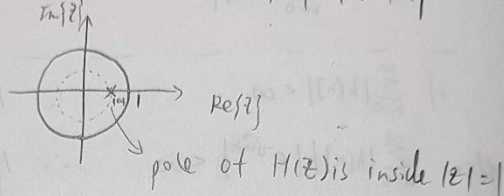 Im{z}
1
Re{z}
pole of H(z) is inside |z|=1